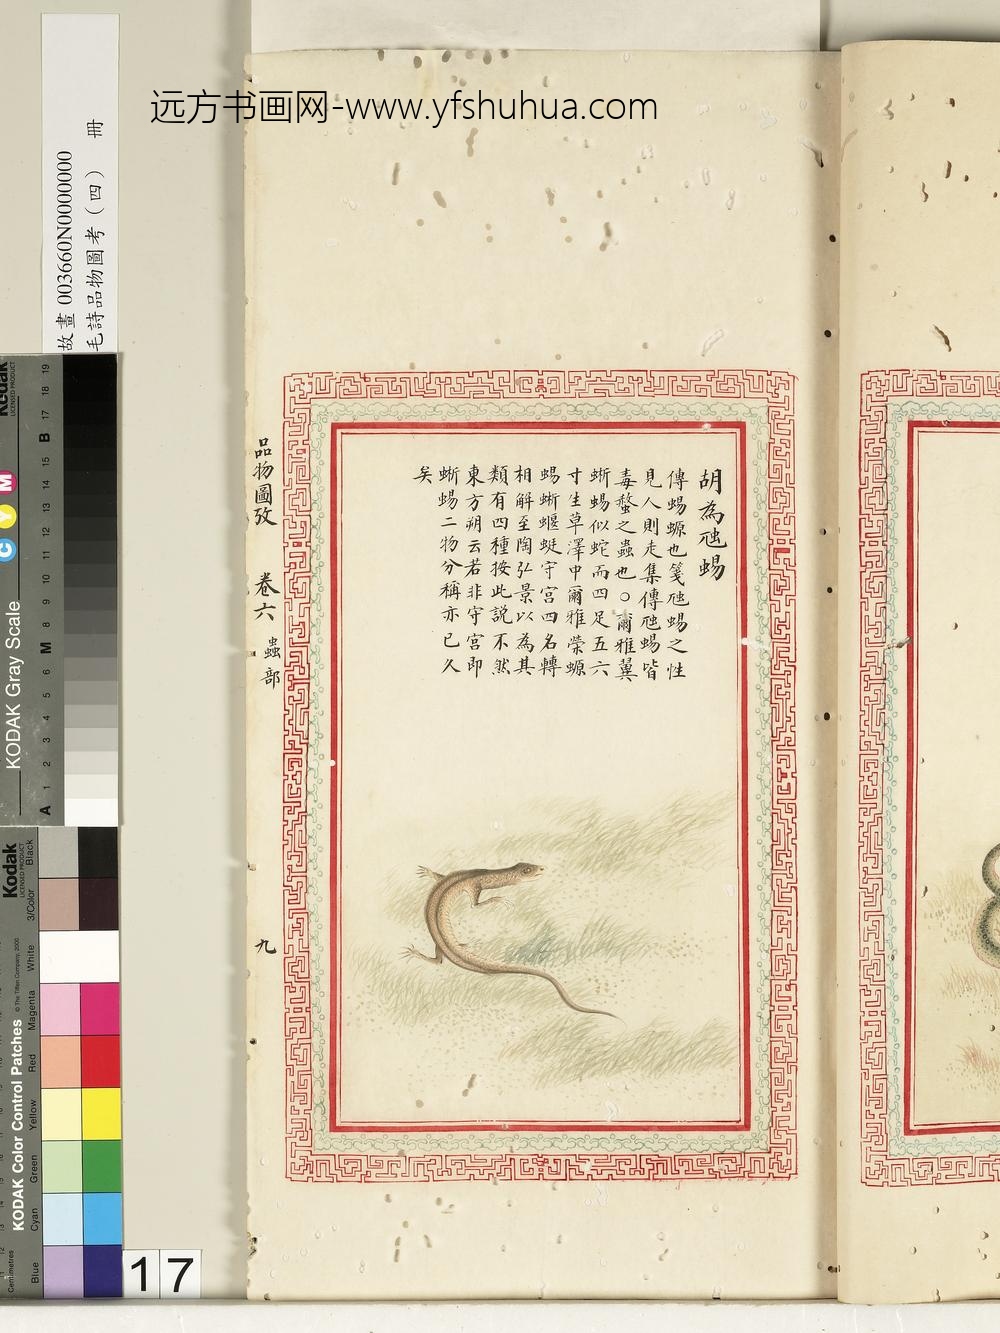 远方书画网-www.yfshuhua.com
故畫 003660N0000000
毛詩品物圖考（四） 冊
胡為虺蜴
傳蜴螈也箋虺蜴之性
見人則走集傳虺蜴皆
毒螫之蟲也○爾雅翼
蜥蜴似蛇而四足五六
寸生草澤中爾雅榮螈
蜴蜥蝘蜓守宮四名轉
相解至陶弘景以為其
類有四種按此説不然
東方朔云若非守宮即
蜥蜴二物分稱亦已久
矣
品物圖攷 卷六 蟲部
九
Kodak
LICENSED PRODUCT
KODAK Gray Scale
C Y M
A 1 2 3 4 5 6 M 8 9 10 11 12 13 14 15 B 17 18 19
Kodak
LICENSED PRODUCT
KODAK Color Control Patches
© The Tiffen Company, 2000
Centimetres
Blue Cyan Green Yellow Red Magenta White 3/Color Black
17